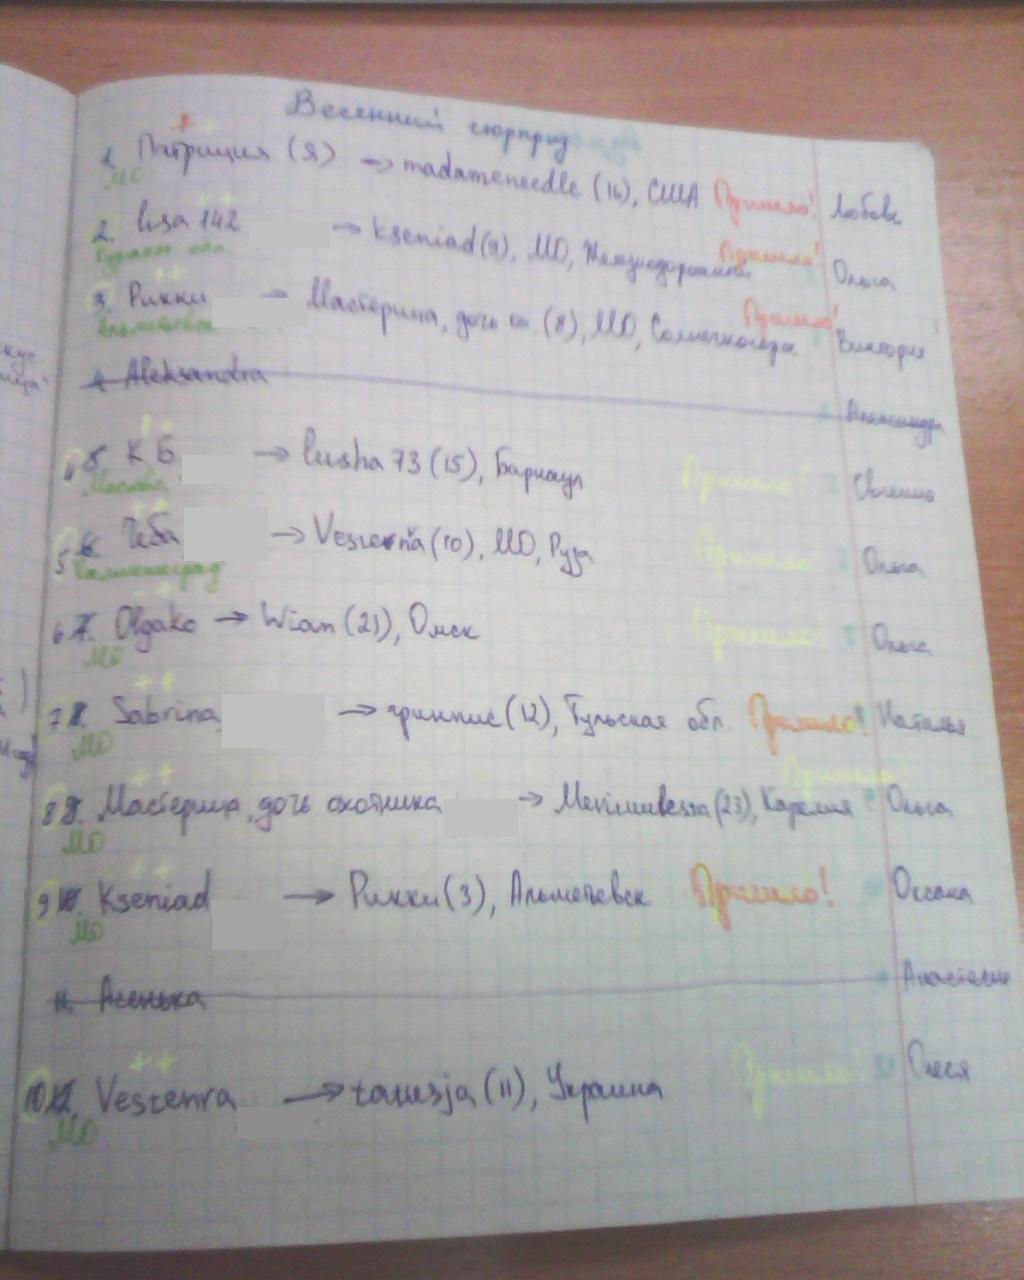 Весенний сюрприз
1. Патриция (Я) → madameneedle (16), США Пришло! Любовь
МО
2. lusa 142 → kseniad (9), МО, Железнодорожный Пришло! Ольга
обл.
3. Рикки → Мастерица, дочь ох. (8), МО, Солнечногорск Пришло! Виктория
Альметьевск
4. Aleksandra Александра
5. К Б → lusha 73 (15), Барнаул Пришло!
Москва
5 6. Чеба → Vestenra (10), МО, Руза Пришло! Ольга
Калининград
6 7. Olgako → Wiam (21), Омск Пришло! Ольга
МО
7 8. Sabrina → гринпис (12), Тульская обл. Пришло! Наталья
МО
8 9. Мастерица, дочь охотника → (23), Карелия Пришло! Ольга
МО
9 10. Kseniad → Рикки (3), Альметьевск Пришло! Оксана
МО
11. Асенька Анастасия
10 12. Vestenra → tanusja (11), Украина Пришло! Олеся
МО